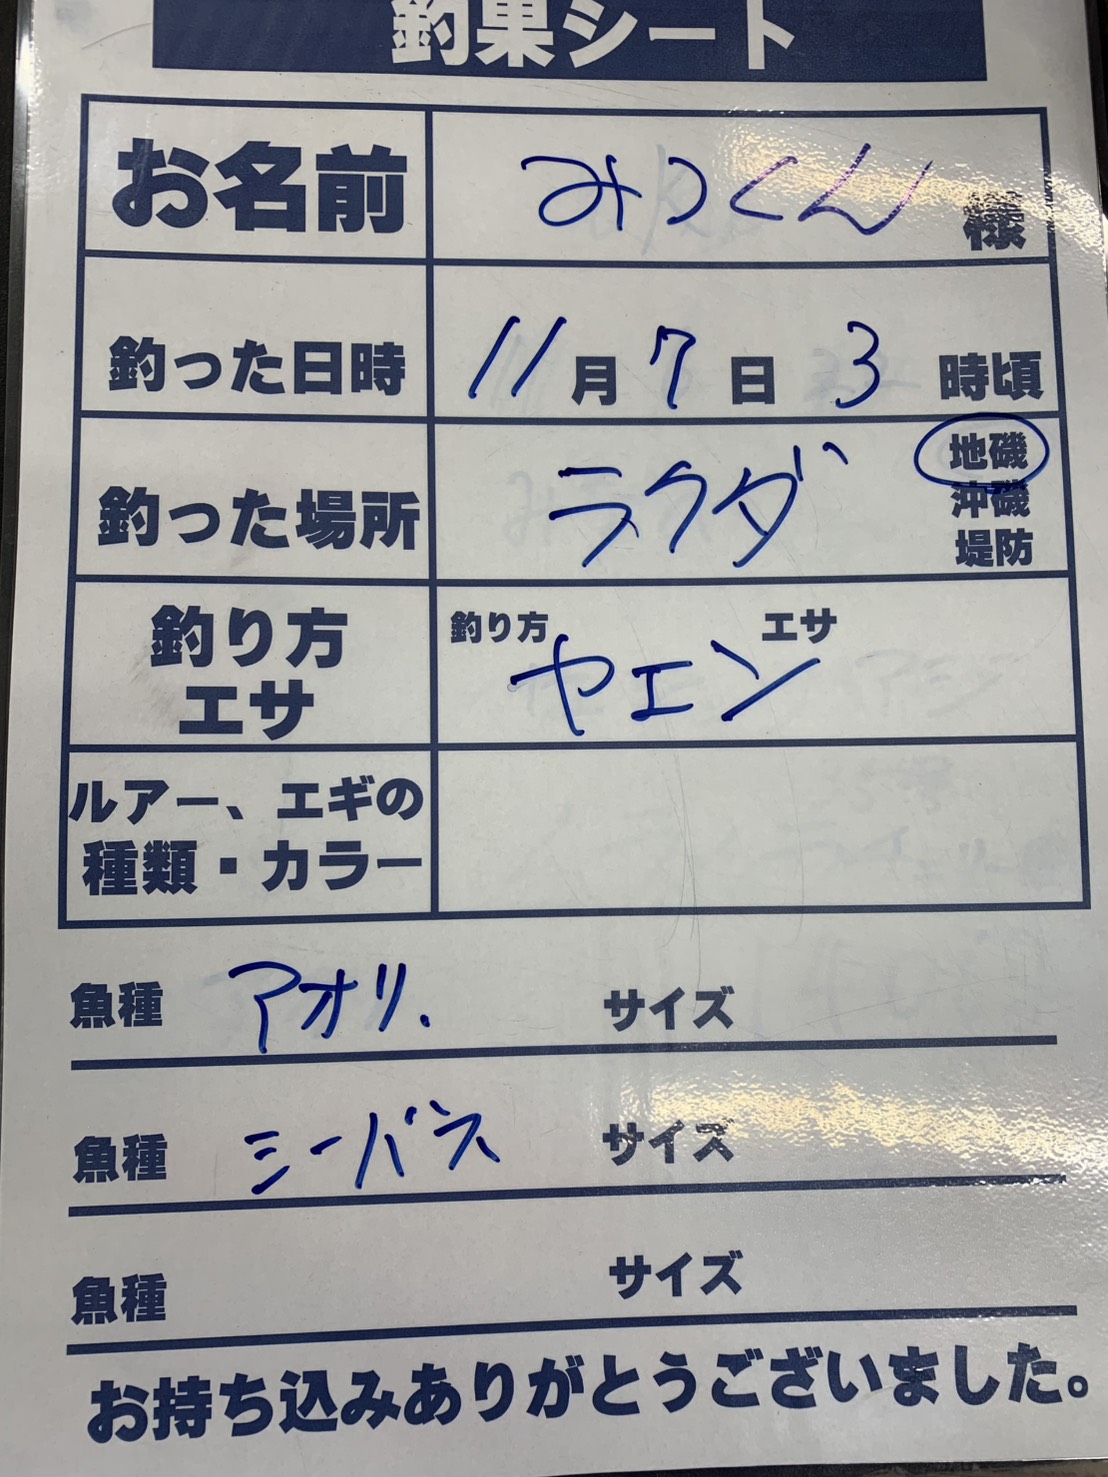 釣果シート
お名前 みつくん 様
釣った日時 11月7日 3時頃
釣った場所 ラクダ 地磯
沖磯
堤防
釣り方 エサ
釣り方
エサ
ヤエン
ルアー、エギの
種類・カラー
魚種 アオリ. サイズ
魚種 シーバス サイズ
魚種 サイズ
お持ち込みありがとうございました。